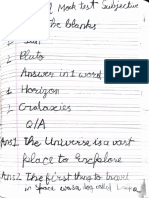 Mock test Subjective
The blanks
2 Pluto
Answer in 1 word
1 Horizon
2 Gralaxies
Q/A
Ans1 The Universe is a vast
place to Enxplore
Ans2 The first thing to travel
in space was a dog called